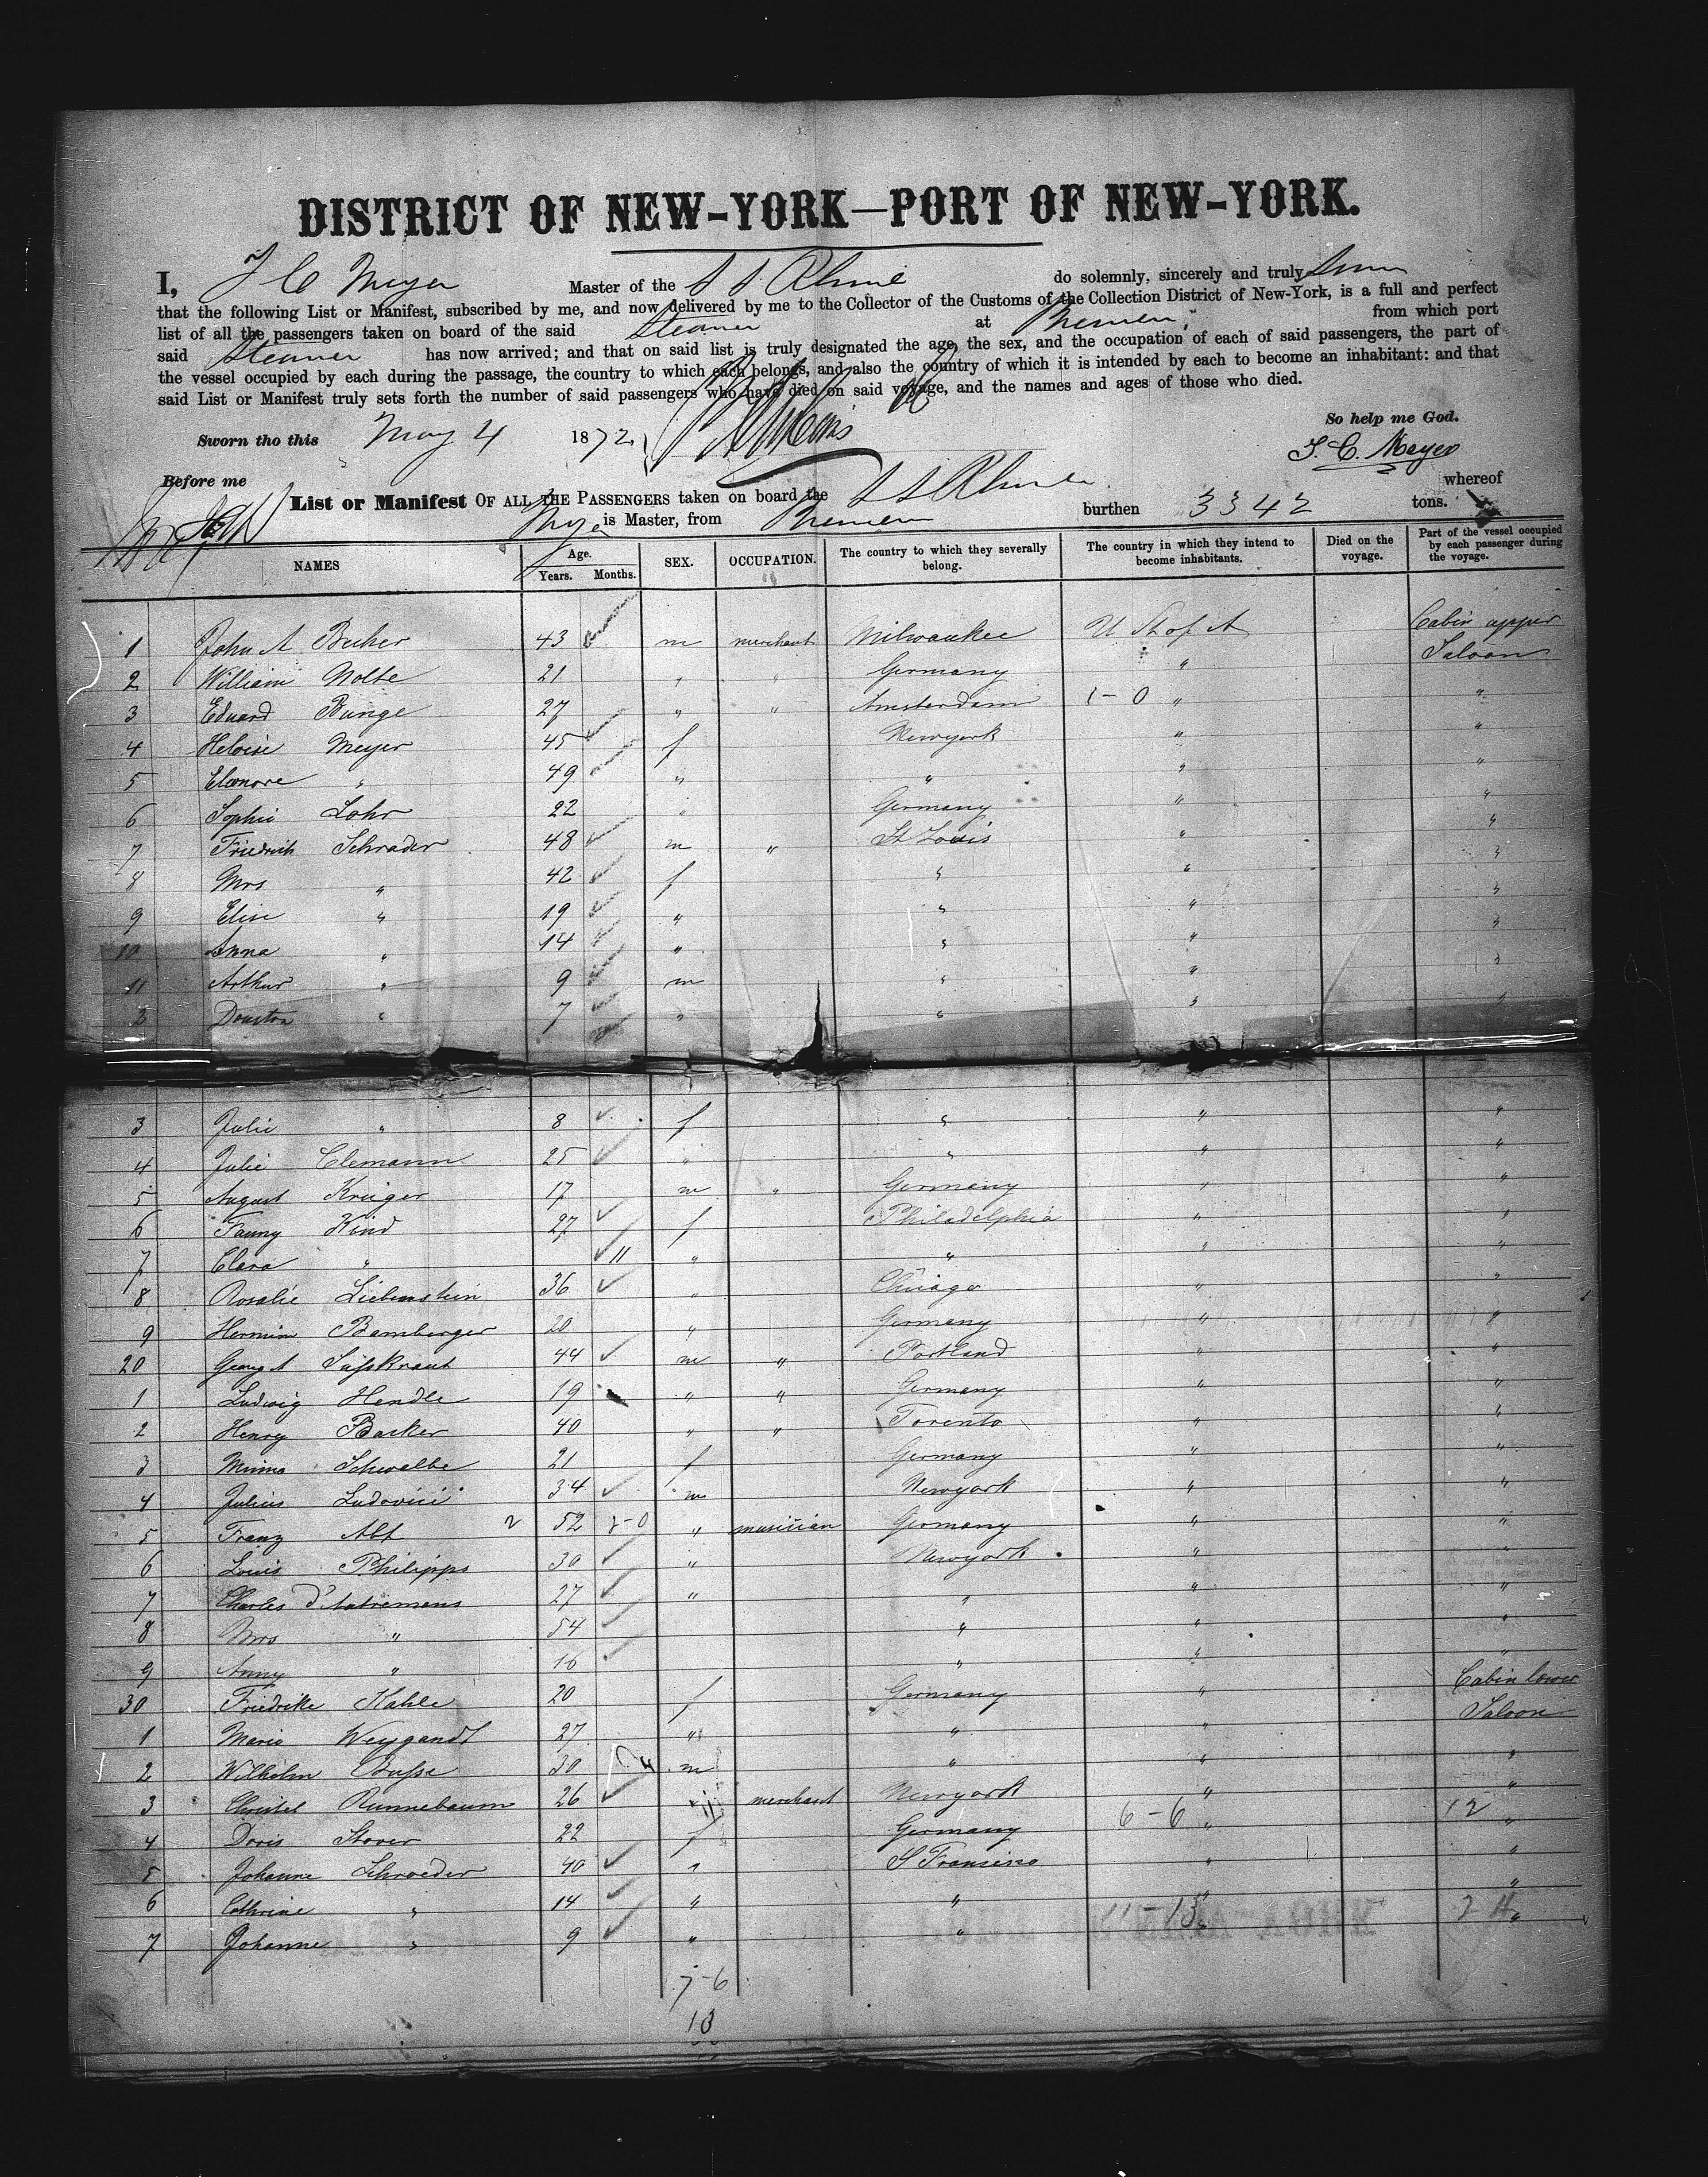 DISTRICT OF NEW-YORK—PORT OF NEW-YORK.
I, J C Meyer Master of the S S Rhine do solemnly, sincerely and truly
that the following List or Manifest, subscribed by me, and now delivered by me to the Collector of the Customs of the Collection District of New-York, is a full and perfect
list of all the passengers taken on board of the said Steamer at Bremen, from which port
said Steamer has now arrived; and that on said list is truly designated the age, the sex, and the occupation of each of said passengers, the part of
the vessel occupied by each during the passage, the country to which each belongs, and also the country of which it is intended by each to become an inhabitant: and that
said List or Manifest truly sets forth the number of said passengers who have died on said voyage, and the names and ages of those who died.
So help me God.
Sworn tho this May 4 1872
J. C. Meyer
Before me
List or Manifest OF ALL THE PASSENGERS taken on board the S S Rhine whereof
Meyer is Master, from Bremen burthen 3342 tons.
NAMES Age. Years. Months. SEX. OCCUPATION. The country to which they severally belong. The country in which they intend to become inhabitants. Died on the voyage. Part of the vessel occupied by each passenger during the voyage.
1 John A Becher 43 m merchant Milwaukee U St of A Cabin upper Saloon
2 William Nolte 21 " " Germany " "
3 Eduard Bunge 27 " " Amsterdam 1-0 " "
4 Heloise Meyer 45 f Newyork " "
5 Eleonore " 49 " " " "
6 Sophie Lohr 22 " Germany " "
7 Friedrich Schrader 48 m " St Louis " "
8 Mrs " 42 f " " "
9 Elise " 19 " " " "
10 Anna " 14 " " " "
11 Arthur " 9 m " " "
2 " 7 " " " "
3 Julie " 8 f " " "
4 Julie Clemann 25 " " " "
5 August Krüger 17 m " Germany " "
6 Fanny Kind 27 f Philadelphia " "
7 Clara " 11 " " " "
8 Rosalie Liebenstein 36 " Chicago " "
9 Hermine Bamberger 20 " Germany " "
20 Georg A Süsskraut 44 m " Portland " "
1 Ludwig Hendle 19 " " Germany " "
2 Henry Barker 40 " " Toronto " "
3 Minna Schwalbe 21 f Germany " "
4 Julius Ludovici 34 m Newyork " "
5 Franz Abt 2 52 " musician Germany " "
6 Louis Philipps 30 " Newyork " "
7 Charles 27 " " " "
8 Mrs " 54 " " "
9 Anny " 16 " " "
30 Friedrike Kahle 20 f Germany " Cabin lower Saloon
1 Marie Weygandt 27 " " "
2 Wilhelm Busse 30 m " " "
3 Christel Runnebaum 26 merchant Newyork " "
6-6 12
4 Doris Stover 22 f Germany " "
5 Johanne Schroeder 40 " S Francisco " "
6 Cathrine " 14 " " " "
11-13 24
7 Johanne " 9 " " " "
7-6
13